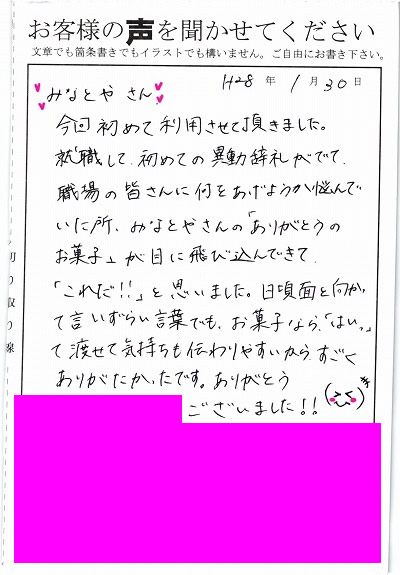 お客様の声を聞かせてください
文章でも箇条書きでもイラストでも構いません。ご自由にお書き下さい。
H28年 1月30日
みなとや さん
今回初めて利用させて頂きました。
就職して、初めての異動辞礼がでて、
職場の皆さんに何をあげようか悩んで
いた所、みなとやさんの「ありがとうの
お菓子」が目に飛び込んできて
「これだ!!」と思いました。日頃面と向かっ
て言いずらい言葉でも、お菓子なら、「はいっ」
て渡せて気持ちも伝わりやすいから、すごく
ありがたかったです。ありがとう
ございました!!
切り取り線